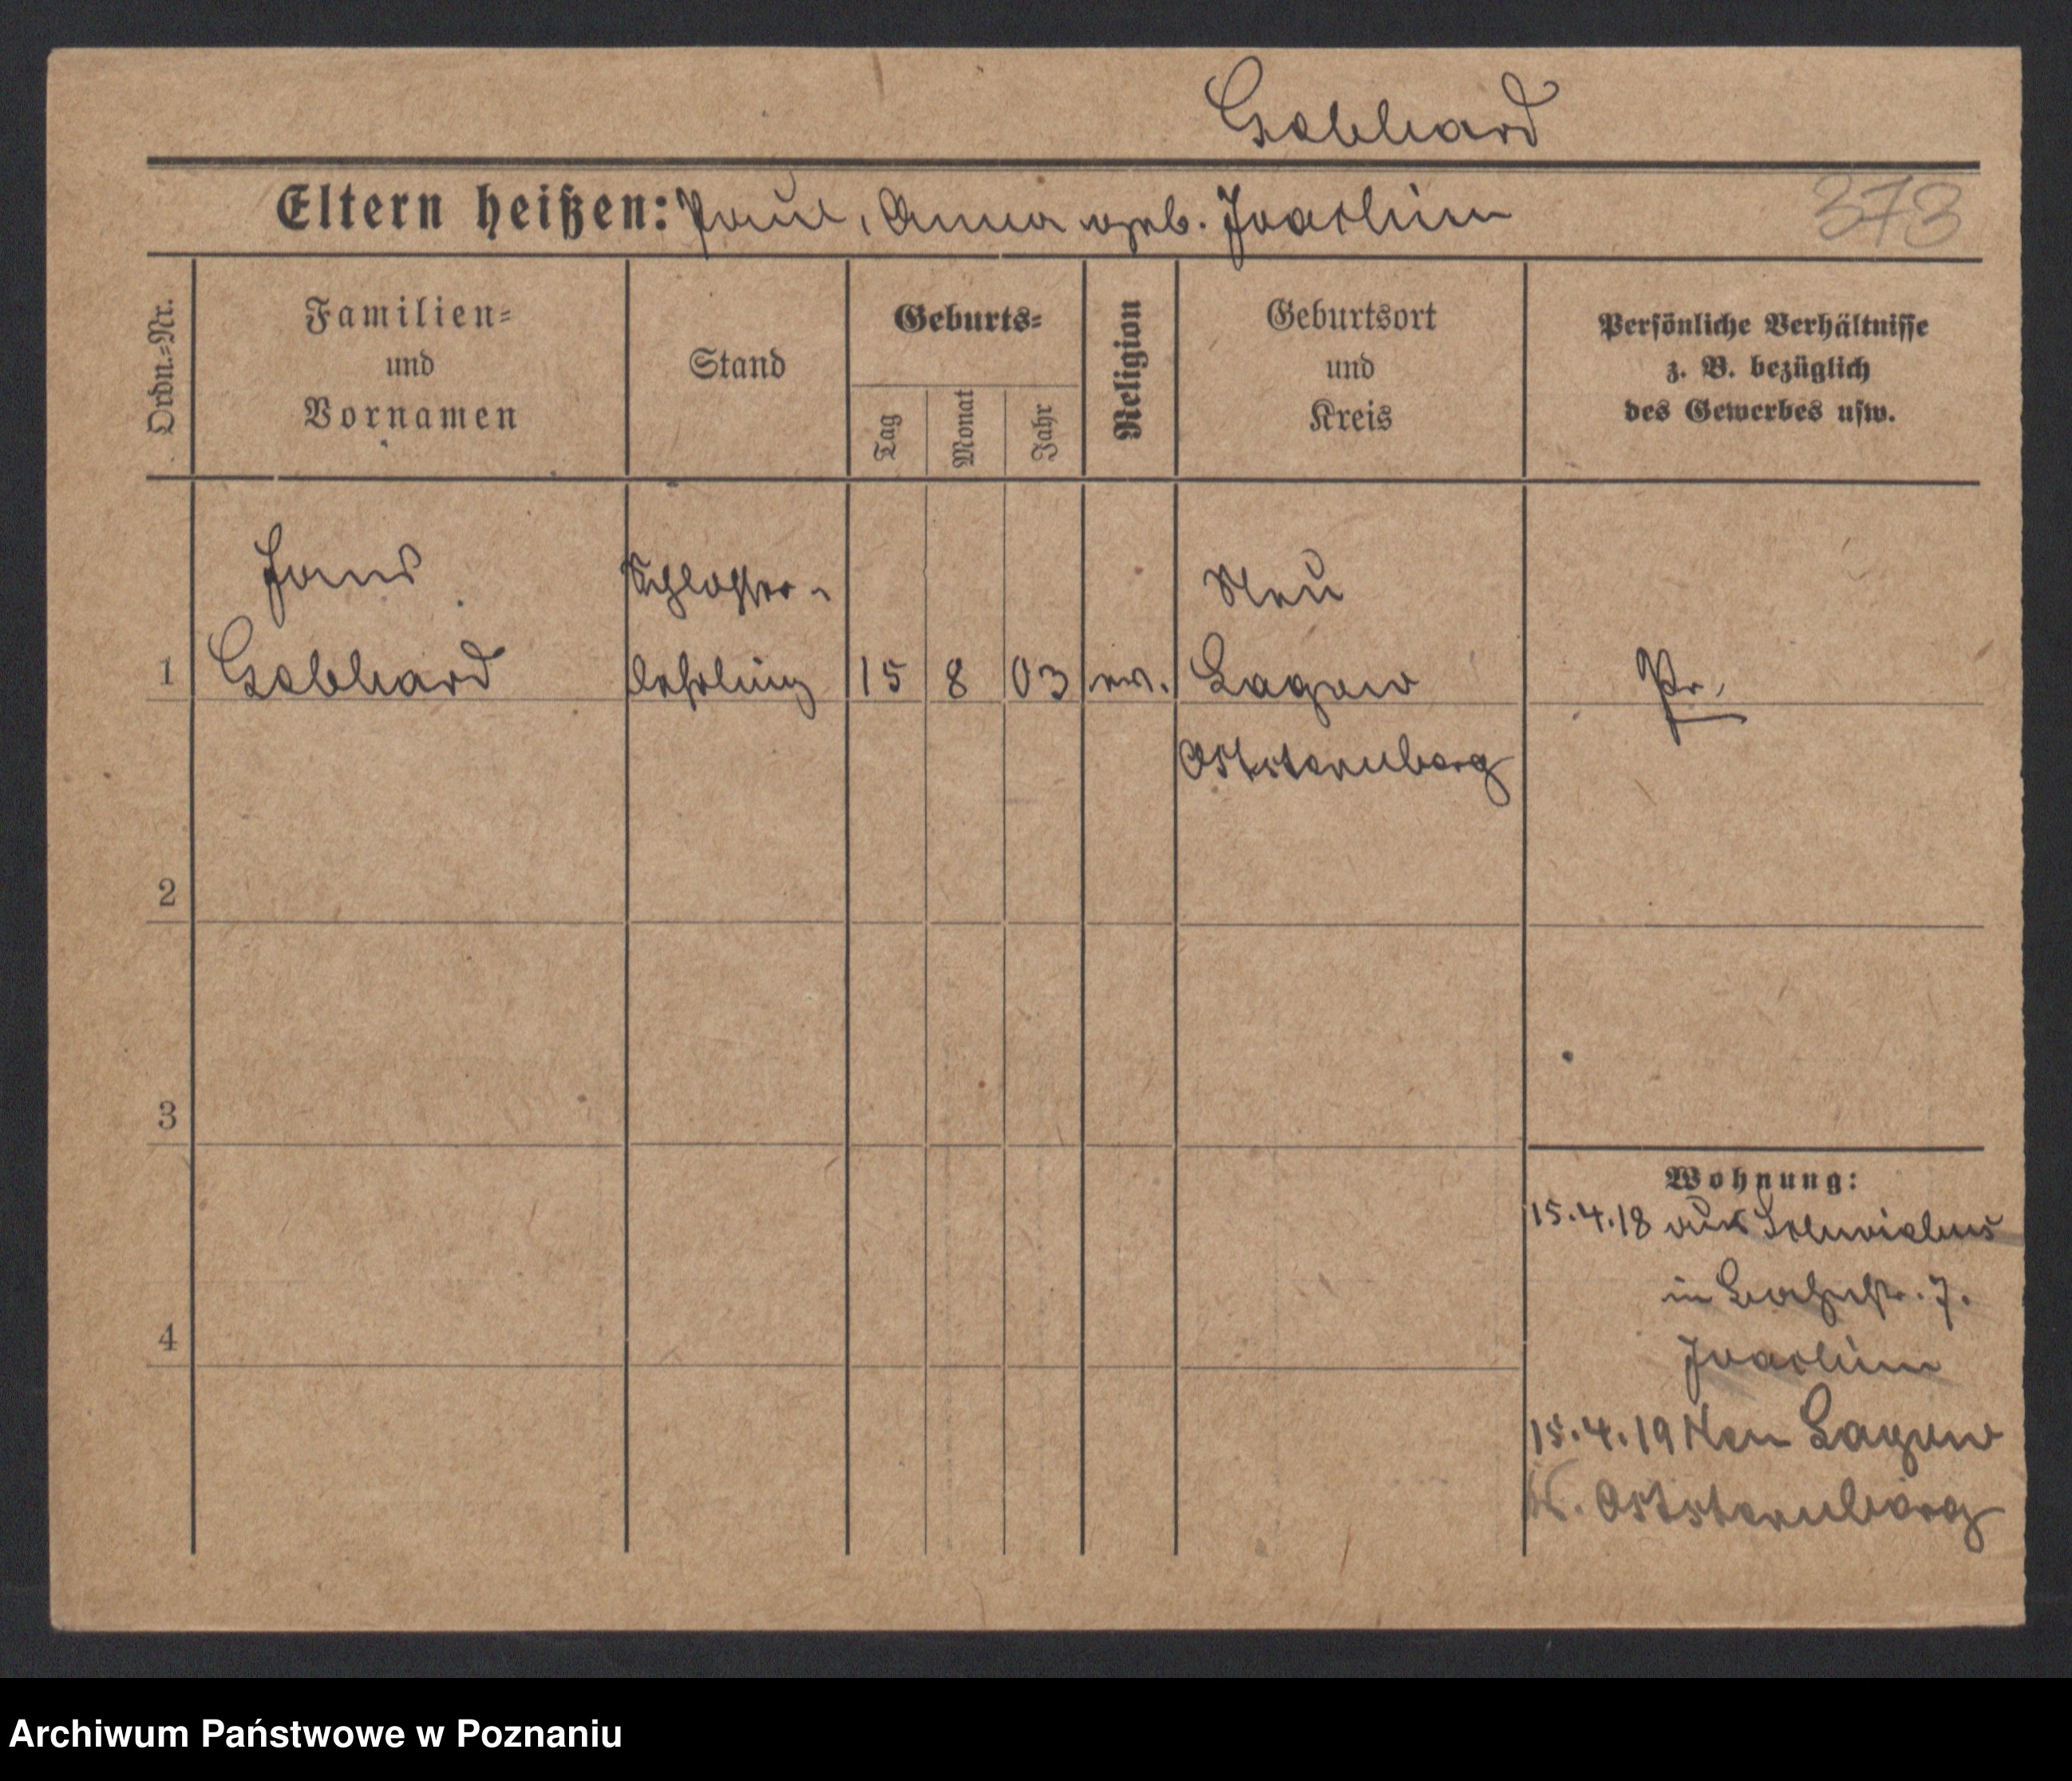 Gebhard
Eltern heißen: Paul, Anna geb. Joachim
373
Ordn.=Nr.
Familien=
und
Vornamen
Stand
Geburts=
Tag
Monat
Jahr
Religion
Geburtsort
und
Kreis
Persönliche Verhältnisse
z. B. bezüglich
des Gewerbes usw.
Hans
Schlosser-
Neu
1 Gebhard lehrling 15 8 03 ev. Lagow Pr.
Oststernberg
2
3
Wohnung:
15.4.18 aus Schwiebus
in Bahnstr. 7.
4
Joachim
15.4.19 Neu Lagow
Oststernberg
Archiwum Państwowe w Poznaniu